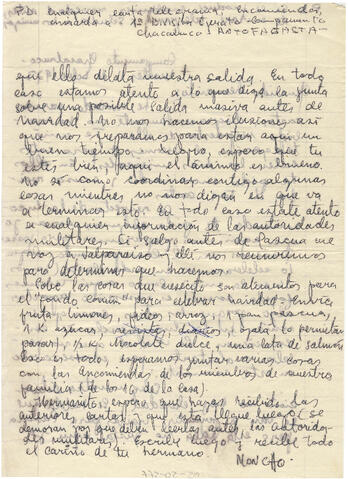 P.D. Cualquier carta telegrama, encomiendas,
enviarla a 1ª División Ejército Campamento
Chacabuco ANTOFAGASTA
que ellos delata nuestra salida. En todo
caso estamos atento a lo que diga la Junta
sobre una posible salida masiva antes de
Navidad. No nos hacemos ilusiones así
que nos preparamos para estar aquí un
buen tiempo. Belario, espero que tu
estés bien, aquí el ánimo es bueno.
No sé como coordinar contigo algunas
cosas mientras no nos digan en que va
a terminar esto. En todo caso estate atento
a cualquier información de las autoridades
militares. Si salgo antes de Pascua me
voy a Valparaíso y allí nos reunimos
para determinar que hacemos.
Sobre las cosas que necesito son alimentos para
el "fondo común" para celebrar navidad. Envía
fruta, limones, fideos, arroz, 1 pan pascua,
1 K. azúcar, ojalá lo permitan
pasar, ½ K. chocolate dulce, una lata de salmón
Eso es todo, esperamos juntar varias cosas
con las encomiendas de los miembros de nuestra
familia (de los 16 de la casa).
Hermanito, espero que hayas recibido las
anteriores cartas y que esta llegue luego (se
demoran por que deben leerlas antes las autorida-
des militares). Escribe luego y recibe todo
el cariño de tu hermano.
MONCHO